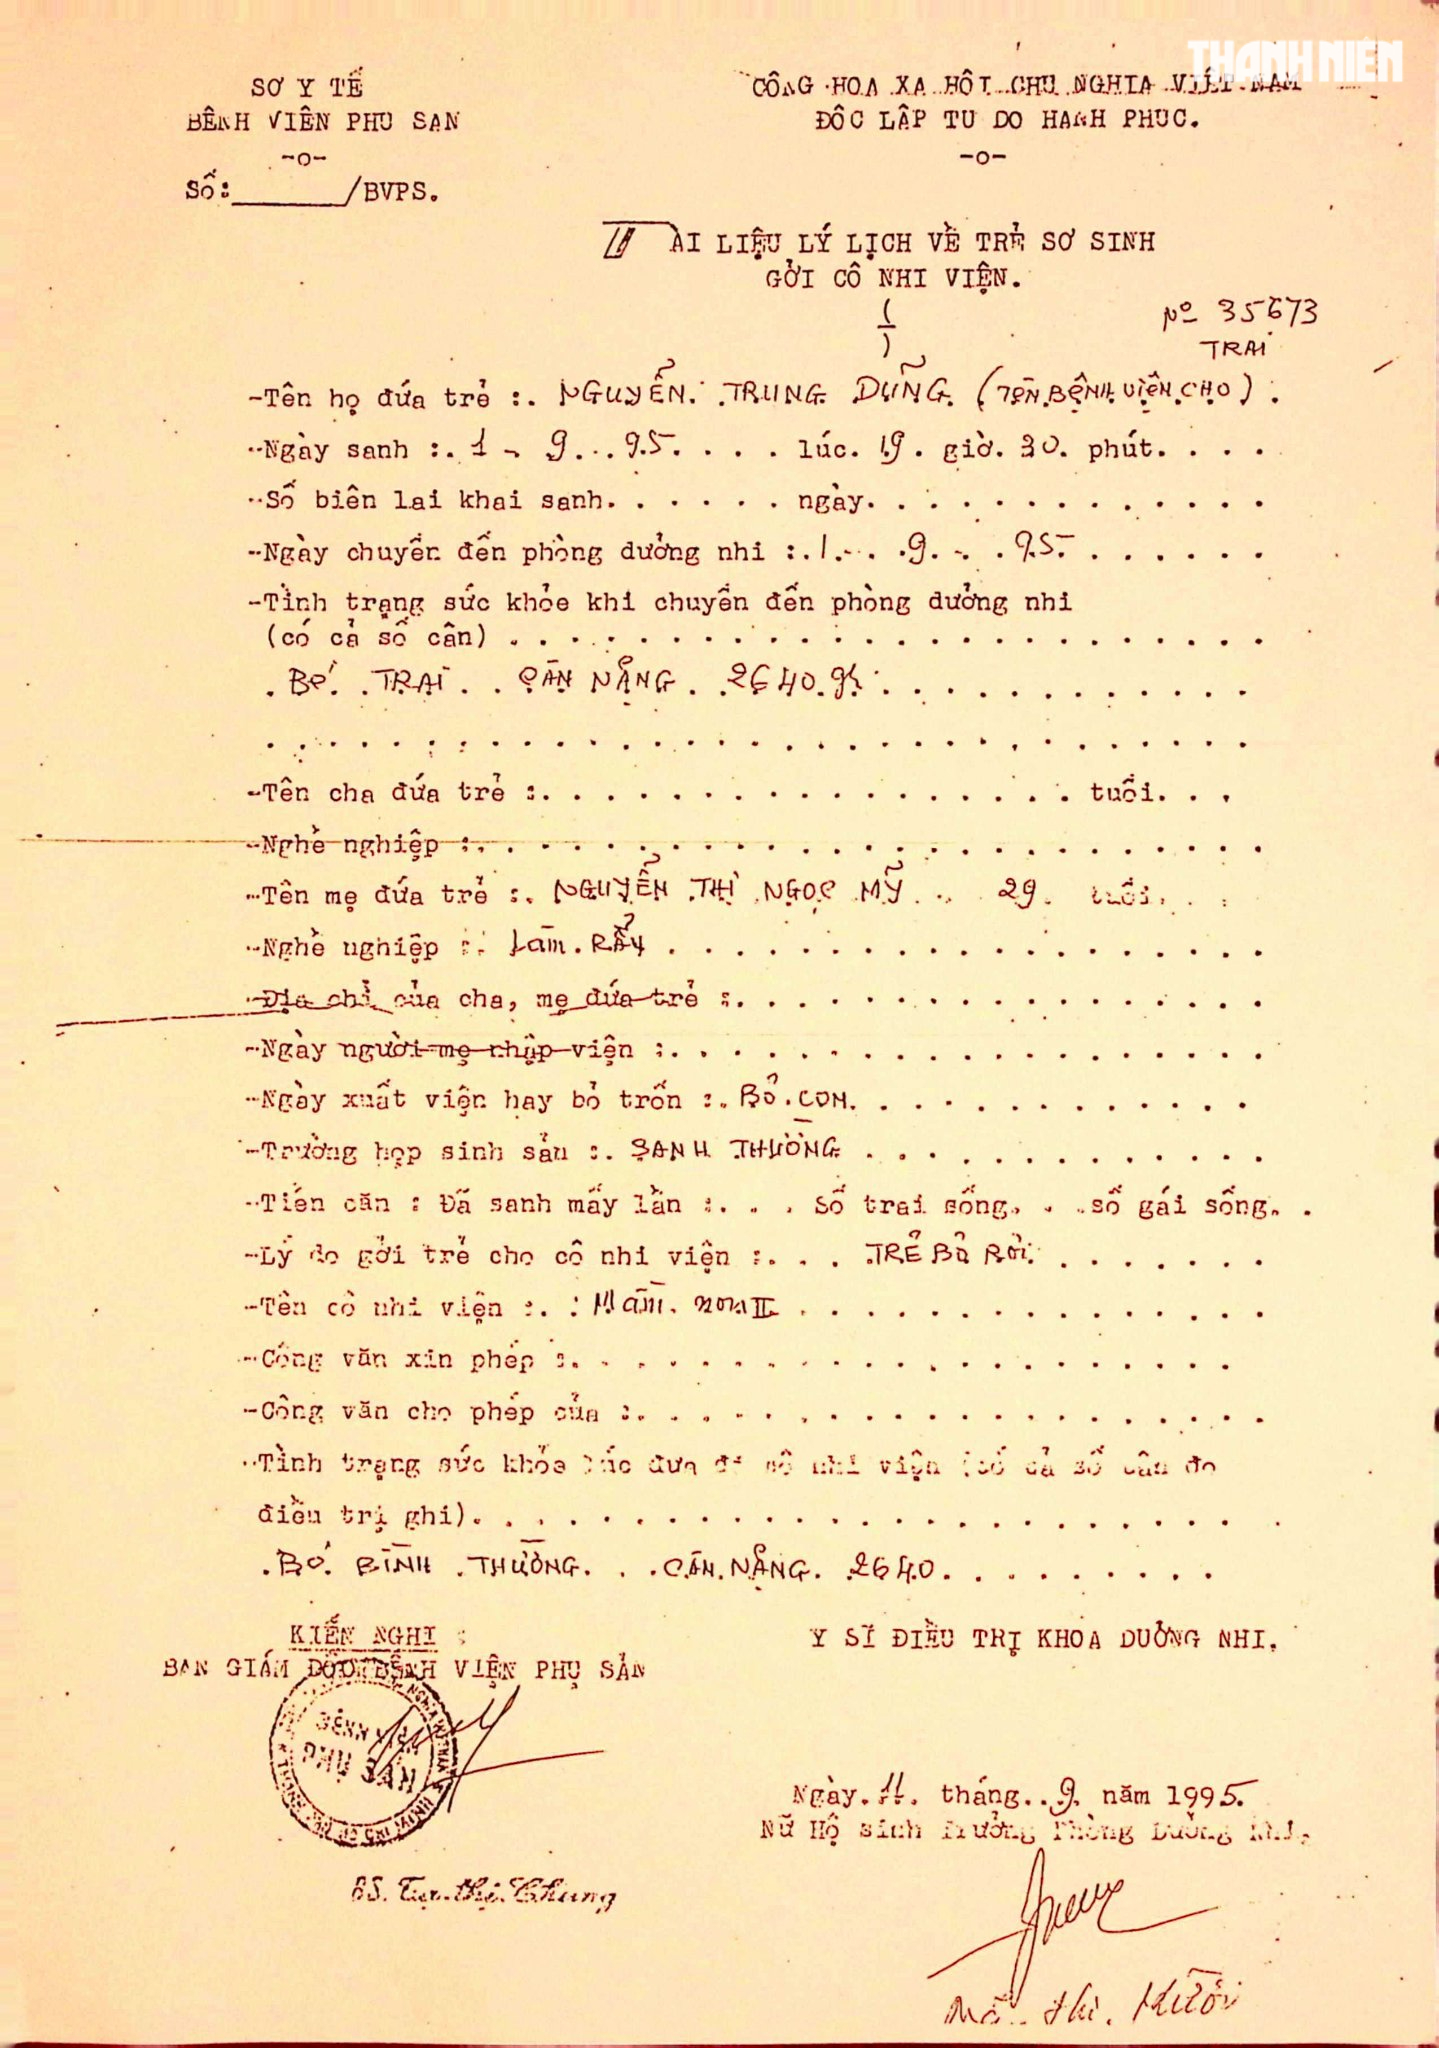 THANH NIÊN
SƠ Y TẾ
BÊNH VIÊN PHU SAN
-o-
Số:______/BVPS.
CÔNG HOA XA HÔI CHU NGHIA VIÊT NAM
ĐÔC LÂP TU DO HANH PHUC.
-o-
TÀI LIỆU LÝ LỊCH VỀ TRẺ SƠ SINH
GỞI CÔ NHI VIỆN.
No 35673
TRAI
-Tên họ đứa trẻ :. NGUYỄN. TRUNG DŨNG. (TÊN BỆNH VIỆN CHO).
-Ngày sanh :. 1 - 9...95.... lúc. 19. giờ. 30. phút....
-Số biên lai khai sanh...... ngày.............
-Ngày chuyển đến phòng dưởng nhi :.1-..9-..95.......
-Tình trạng sức khỏe khi chuyển đến phòng dưởng nhi
(có cả số cân)........................
. BÉ. .TRAI. . CÂN NẶNG. .2640.gr.............
...............................
-Tên cha đứa trẻ :.................tuổi...
-Nghề nghiệp :.........................
-Tên mẹ đứa trẻ :. NGUYỄN THỊ NGỌC MỸ .. 29. tuổi...
-Nghề nghiệp : Làm.RẪY...................
-Địa chỉ của cha, mẹ đứa trẻ :.................
-Ngày người mẹ nhập viện :...................
-Ngày xuất viện hay bỏ trốn :. BỎ.CON.............
-Trường hợp sinh sản :. SANH THƯỜNG.............
-Tiền căn : Đã sanh mấy lần :... Số trai sống...số gái sống..
-Lý do gởi trẻ cho cô nhi viện :... .TRẺ BỎ RƠI........
-Tên cô nhi viện :. : Mầm. non II...............
-Công văn xin phép :.....................
-Công văn cho phép của :....................
-Tình trạng sức khỏe lúc đưa cô nhi viện (có cả số cân do
điều trị ghi)........................
.BÉ BÌNH .THƯỜNG. . .CÂN.NẶNG. 2640.........
KIẾN NGHỊ :
BAN GIÁM ĐỐC BỆNH VIỆN PHỤ SẢN
BỆNH VIỆN
PHỤ SẢN
BS. Tạ thị Chung
Y SĨ ĐIỀU TRỊ KHOA DUỞNG NHI.
Ngày.11. tháng..9. năm 1995.
Nữ Hộ sinh Trưởng Phòng Dưởng Nhi.
thị.